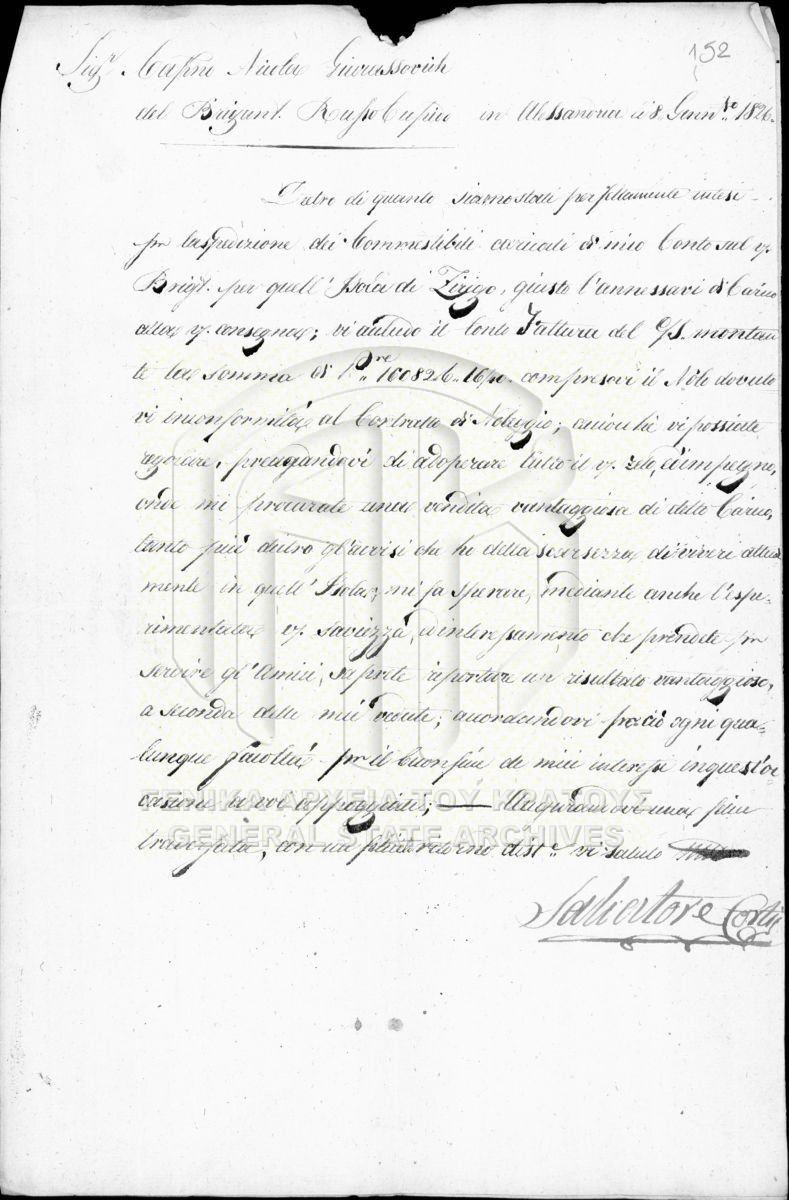 152
Sigr. Caspno Nicola Giurassovich
del Brigant. Russo Caspio in Alessandria li 8 Genn.io 1826.
Dietro di quanto siamo stati perfettamente intesi
pr la spedizione dei Commestibili caricati di mio Conto sul v.
Brigt. per quell' Isola di Zirigo, giusto l'annessavi di Carico
alla v. consegna; vi accludo il Conto Fattura del montan
te la somma di 100826..16 compresovi il Nolo dovuto
vi in conformità al Contratto di Noleggio; acciocchè vi possiate
regolare, pregandovi di adoperare tutto il v. zelo, ed impegno,
onde mi procurate una vendita vantaggiosa di detto Carico,
tanto più dietro gl'avvisi che ho della scarsezza di viveri attual
mente in quell' Isola, mi fa sperare, mediante anche l'espe-
rimentata v. saviezza, ed interessamento che prendete pr
servire gl'Amici, saprete riportare un risultato vantaggioso,
a seconda delle mie vedute; accordandovi perciò ogni qua-
lunque facoltà pr il buon fine de miei interessi in quest'oc
casione a voi appoggiati; — Augurandovi una felice
traversata, con vi saluto
Salvatore
ΓΕΝΙΚΑ ΑΡΧΕΙΑ ΤΟΥ ΚΡΑΤΟΥΣ
GENERAL STATE ARCHIVES